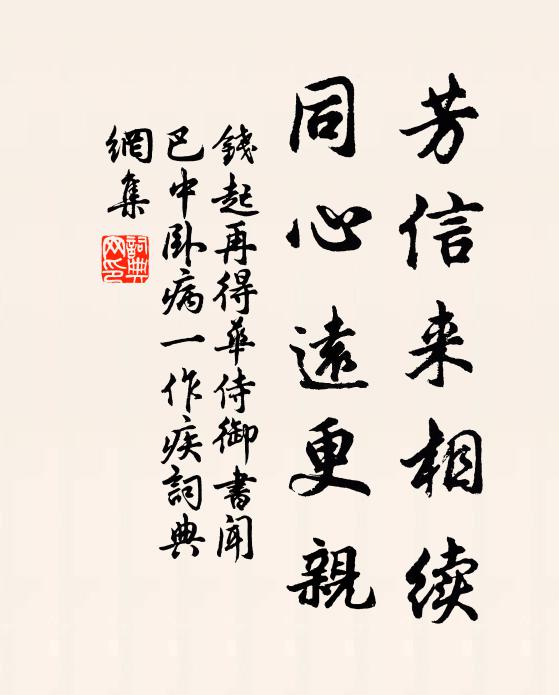 芳信来相续
同心遠更親
錢起再得華侍御書聞
巴中卧病一作疾詞典
網集
詞典
网印